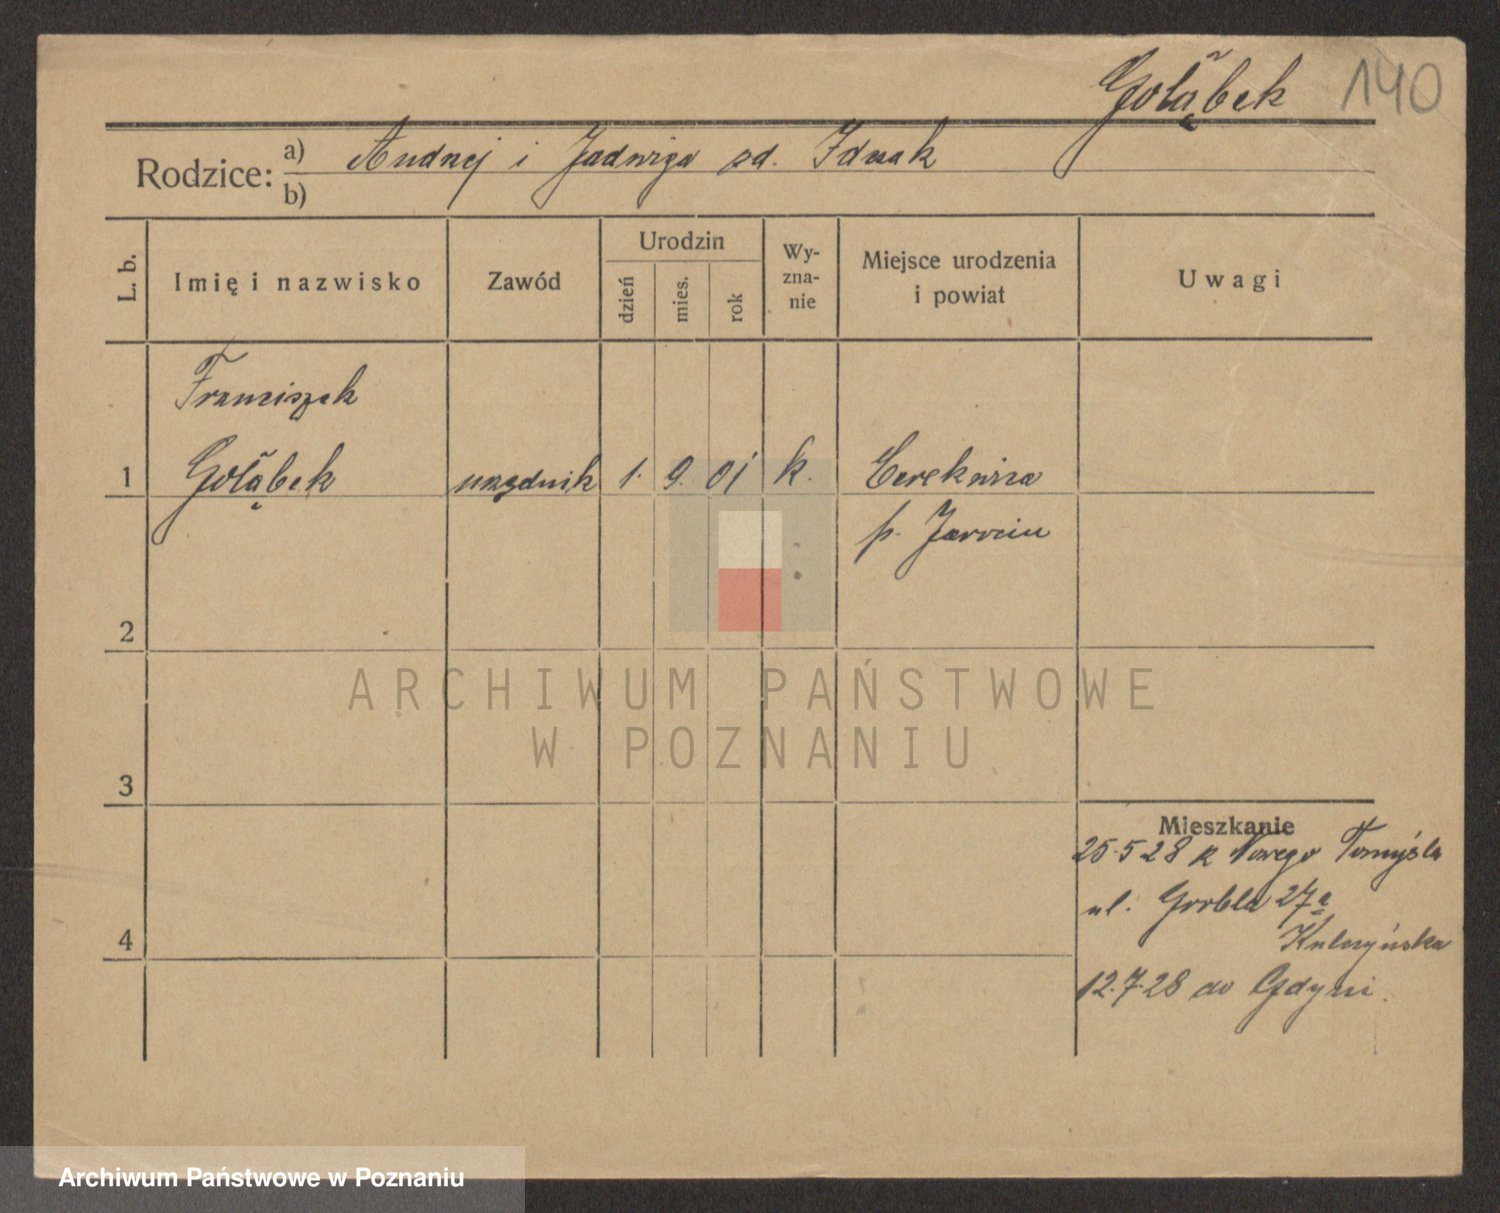 Gołąbek 140
Rodzice: a) Andrzej i Jadwiga zd. Idczak
b)
L. b. Imię i nazwisko Zawód Urodzin dzień mies. rok Wy-zna-nie Miejsce urodzenia i powiat Uwagi
Franciszek
1 Gołąbek urzędnik 1. 9. 01 k. Cerekwica
p. Jarocin
2
ARCHIWUM PAŃSTWOWE
W POZNANIU
3
Mieszkanie
25.5.28 z Nowego Tomyśla
ul. Grobla 27a
4
12.7.28 do Gdyni.
Archiwum Państwowe w Poznaniu